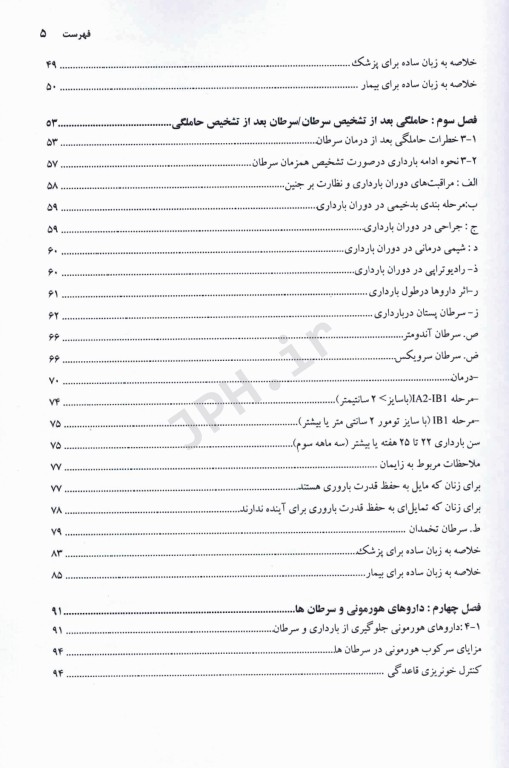 فهرست ۵
خلاصه به زبان ساده برای پزشک ۴۹
خلاصه به زبان ساده برای بیمار ۵۰
فصل سوم : حاملگی بعد از تشخیص سرطان/سرطان بعد از تشخیص حاملگی ۵۳
۳-۱ خطرات حاملگی بعد از درمان سرطان ۵۳
۳-۲ نحوه ادامه بارداری درصورت تشخیص همزمان سرطان ۵۷
الف : مراقبت‌های دوران بارداری و نظارت بر جنین ۵۸
ب:مرحله بندی بدخیمی در دوران بارداری ۵۹
ج : جراحی در دوران بارداری ۵۹
د : شیمی درمانی در دوران بارداری ۶۰
ذ- رادیوتراپی در دوران بارداری ۶۰
ر-اثر داروها درطول بارداری ۶۱
ز- سرطان پستان دربارداری ۶۲
ص. سرطان آندومتر ۶۶
ض. سرطان سرویکس ۶۶
-درمان ۷۰
-مرحله IA2-IB1(باسایز> ۲ سانتیمتر) ۷۴
-مرحله IB1 (با سایز تومور ۲ سانتی متر یا بیشتر) ۷۵
سن بارداری ۲۲ تا ۲۵ هفته یا بیشتر (سه ماهه سوم) ۷۵
ملاحظات مربوط به زایمان ۷۷
برای زنان که مایل به حفظ قدرت باروری هستند ۷۷
برای زنان که تمایل‌ای به حفظ قدرت باروری برای آینده ندارند ۷۸
ط. سرطان تخمدان ۷۹
خلاصه به زبان ساده برای پزشک ۸۳
خلاصه به زبان ساده برای بیمار ۸۵
فصل چهارم : داروهای هورمونی و سرطان ها ۹۱
۴-۱ :داروهای هورمونی جلوگیری از بارداری و سرطان ۹۱
مزایای سرکوب هورمونی در سرطان ها ۹۴
کنترل خونریزی قاعدگی ۹۴
JPH.ir